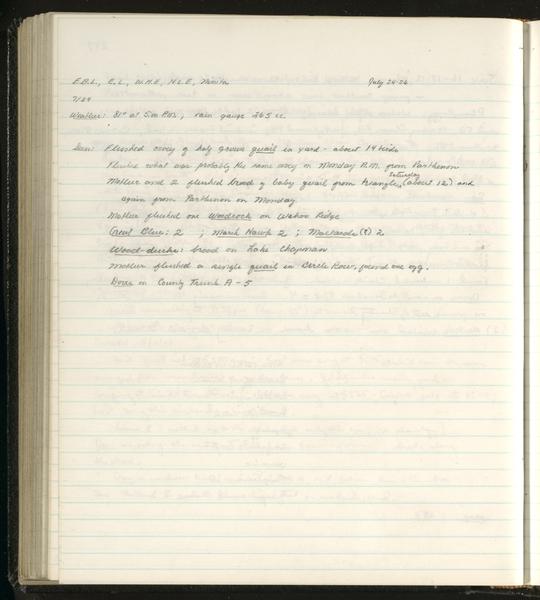 E.B.L., E.L., W.H.E., N.L.E., July 24-26
7/24
Weather: 81° at 5 P.M., rain gauge 265 cc.
Seen: Flushed covey of half grown quail in yard - about 14 birds
Flushed what was probably the same covey on Monday A.M. from Parthenon
Mother and I flushed brood of baby quail from triangle Saturday (about 12) and
again from Parthenon on Monday
Mother flushed one Woodcock on Wahoo Ridge
Great Blue: 2 ; Marsh Hawk 2 ; Mallards (?) 2
Wood-ducks: brood on Lake Chapman
Mother flushed a single quail in Birch Row, found one egg.
Dove on County Trunk A - 5